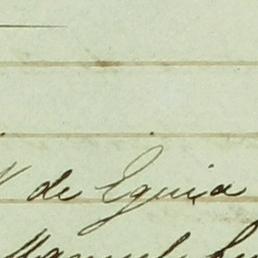 de Eguia
Manuel